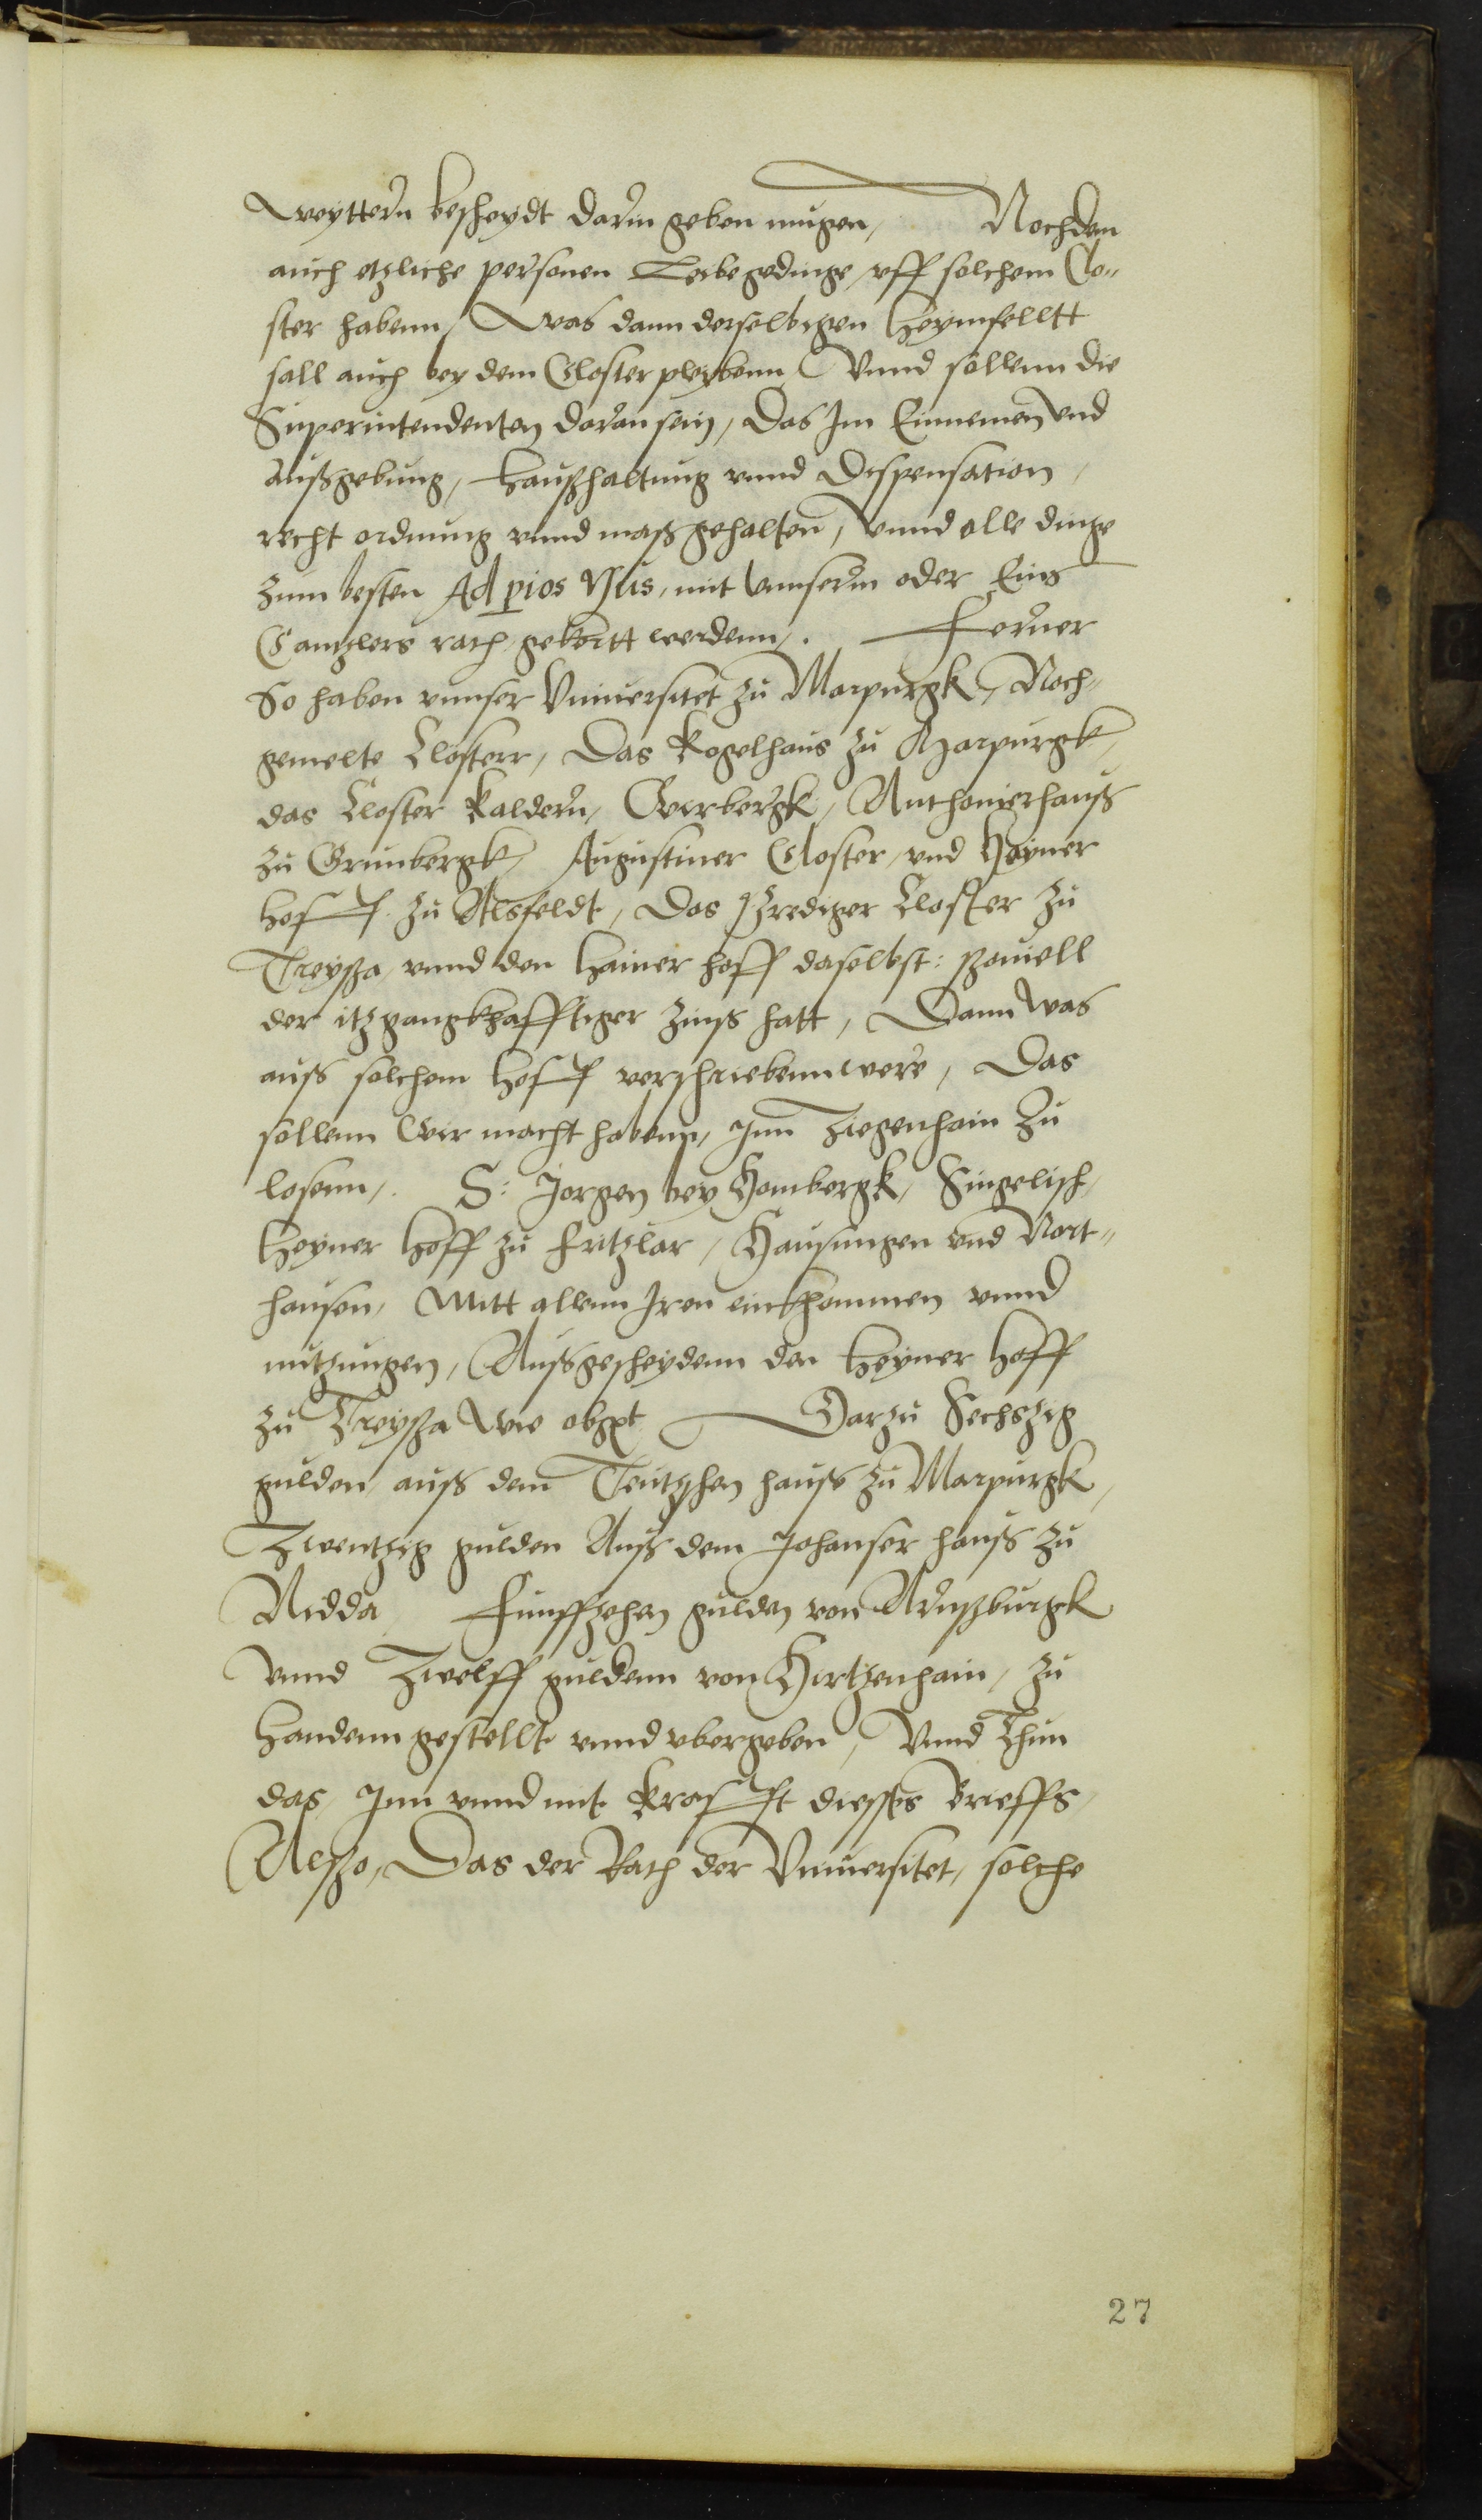 weyttern bescheydt darin geben mugen, Nochdem
auch etzliche personen Leibgedinge, vff solchem Clo¬
ster habenn, Was dann derselbigen heymfelltt
sall auch bey dem Closter pleybenn, Vnnd sollenn die
Superintendenten daran sein, Das Im Einnemen vnd
Außgebung, haußhaltung vnnd Dispensation,
recht ordnung vnnd maß gehalten, Vnnd alle dinge
zum besten Ad pios Vsus, mit vnnserm oder Eins
Cantzlers rath gekertt werdenn,. Ferner
So haben vnnser Vniuersitet zu Marpurgk, Noch¬
gemelte Closterr, Das Kogelhaus zu Marpurgk,
das Closter Kaldern, Werbergk, Anthonierhauß
zu Grunbergk, Augustiner Closter, vnd Heyner
hoff zu Alsfeldt, Das Prediger Closter zu
Treyßa, vnnd den Hainer hoff daselbst: souiell
der itz gangkhafftiger Zinß hatt, Dann was
auß solchem hoff verschriebenn were, Das
sollenn Wir macht habenn, Inn Ziegenhain zu
losenn,. S: Jorgen bey Hombergk, Singelisch,
Heyner hoff zu Fritzlar, Hausungen vnd Nort¬
hausen, Mitt allenn Iren einkhommen vnnd
nutzungen, Außgescheydenn den Heyner hoff
zu Treyßa wie obgt Darzu Sechszig
gulden auß dem Teutzschen hauß zu Marpurgk,
Zwentzig gulden Auß dem Johanser hauß zu
Nidda, Funffzehen gulden von Arnßburgk
Vnnd Zwelff guldenn von Hirtzenhain, zu
handenn gestellt vnnd vbergeben, Vnnd Thun
das, Inn vnnd mit Krafft dießes Brieffs,
Alßo, Das der Rath der Vniuersitet, solche
27